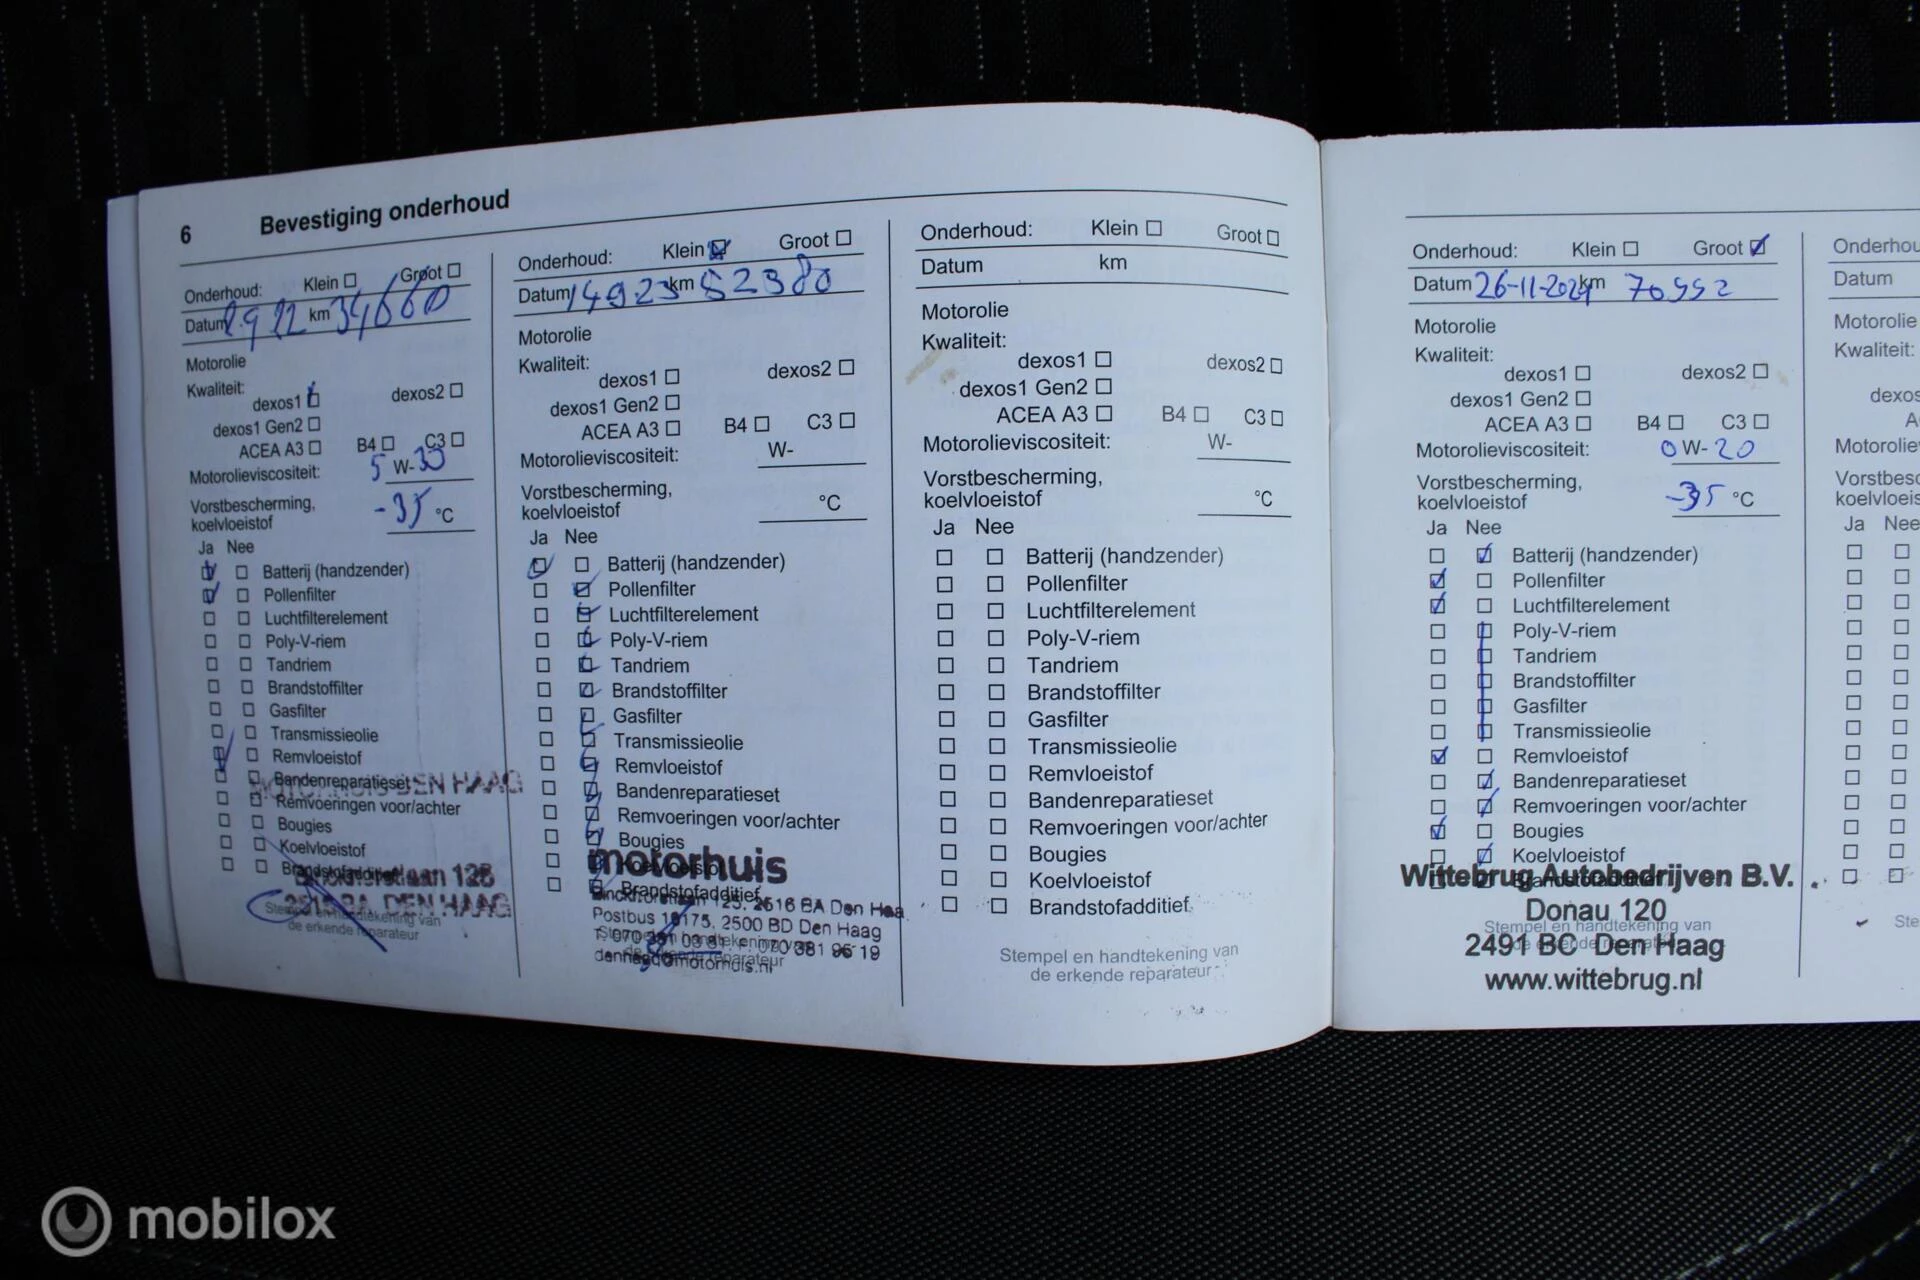 6 Bevestiging onderhoud
Onderhoud: Klein Groot
Datum km 34660
Motorolie
Kwaliteit:
dexos1 dexos2
dexos1 Gen2
ACEA A3 B4 C3
Motorolieviscositeit: 5 W-30
Vorstbescherming,
koelvloeistof -35 °C
Ja Nee
Batterij (handzender)
Pollenfilter
Luchtfilterelement
Poly-V-riem
Tandriem
Brandstoffilter
Gasfilter
Transmissieolie
Remvloeistof
Bandenreparatieset
MOTORHUIS DEN HAAG
Remvoeringen voor/achter
Bougies
Koelvloeistof
Brandstofadditief
125
2516 BA DEN HAAG
Stempel en handtekening van
de erkende reparateur
Onderhoud: Klein Groot
Datum 14923 km 52380
Motorolie
Kwaliteit:
dexos1 dexos2
dexos1 Gen2
ACEA A3 B4 C3
Motorolieviscositeit: W-
Vorstbescherming,
koelvloeistof °C
Ja Nee
Batterij (handzender)
Pollenfilter
Luchtfilterelement
Poly-V-riem
Tandriem
Brandstoffilter
Gasfilter
Transmissieolie
Remvloeistof
Bandenreparatieset
Remvoeringen voor/achter
Bougies
motorhuis
Koelvloeistof
Brandstofadditief
Binckhorstlaan 125, 2516 BA Den Haa
Postbus 16175, 2500 BD Den Haag
Stempel en handtekening van
T. 070 381 03 81 F. 070 381 95 19
de erkende reparateur
denhaag@motorhuis.nl
Onderhoud: Klein Groot
Datum km
Motorolie
Kwaliteit:
dexos1 dexos2
dexos1 Gen2
ACEA A3 B4 C3
Motorolieviscositeit: W-
Vorstbescherming,
koelvloeistof °C
Ja Nee
Batterij (handzender)
Pollenfilter
Luchtfilterelement
Poly-V-riem
Tandriem
Brandstoffilter
Gasfilter
Transmissieolie
Remvloeistof
Bandenreparatieset
Remvoeringen voor/achter
Bougies
Koelvloeistof
Brandstofadditief
Stempel en handtekening van
de erkende reparateur
Onderhoud: Klein Groot
Datum 26-11-2024 km 70552
Motorolie
Kwaliteit:
dexos1 dexos2
dexos1 Gen2
ACEA A3 B4 C3
Motorolieviscositeit: 0 W-20
Vorstbescherming,
koelvloeistof -35 °C
Ja Nee
Batterij (handzender)
Pollenfilter
Luchtfilterelement
Poly-V-riem
Tandriem
Brandstoffilter
Gasfilter
Transmissieolie
Remvloeistof
Bandenreparatieset
Remvoeringen voor/achter
Bougies
Koelvloeistof
Brandstofadditief
Wittebrug Autobedrijven B.V.
Donau 120
Stempel en handtekening van
2491 BC Den Haag
de erkende reparateur
www.wittebrug.nl
Onderhou
Datum
Motorolie
Kwaliteit:
dexos
A
Motorolie
Vorstbesc
koelvloeis
Ja Nee
Ste
mobilox